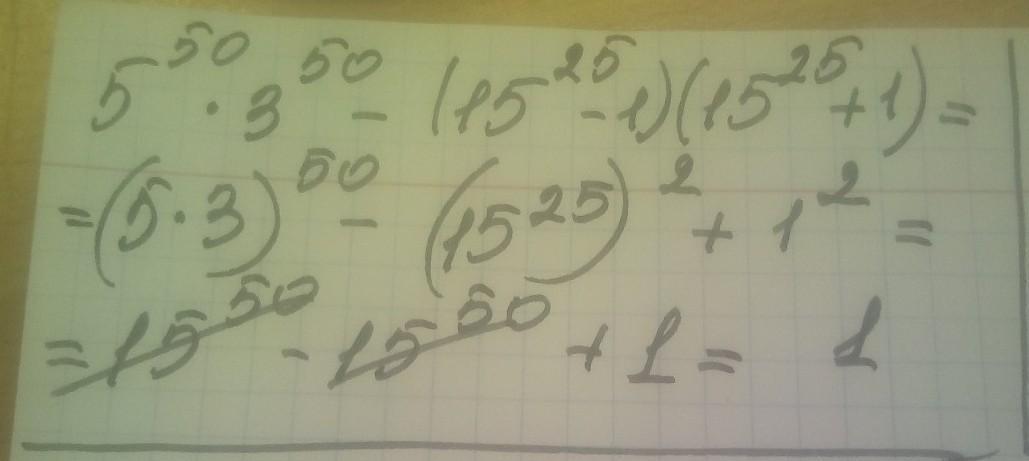 5⁵⁰ · 3⁵⁰ - (15²⁵ - 1)(15²⁵ + 1) =
= (5 · 3)⁵⁰ - (15²⁵)² + 1² =
= 15⁵⁰ - 15⁵⁰ + 1 = 1